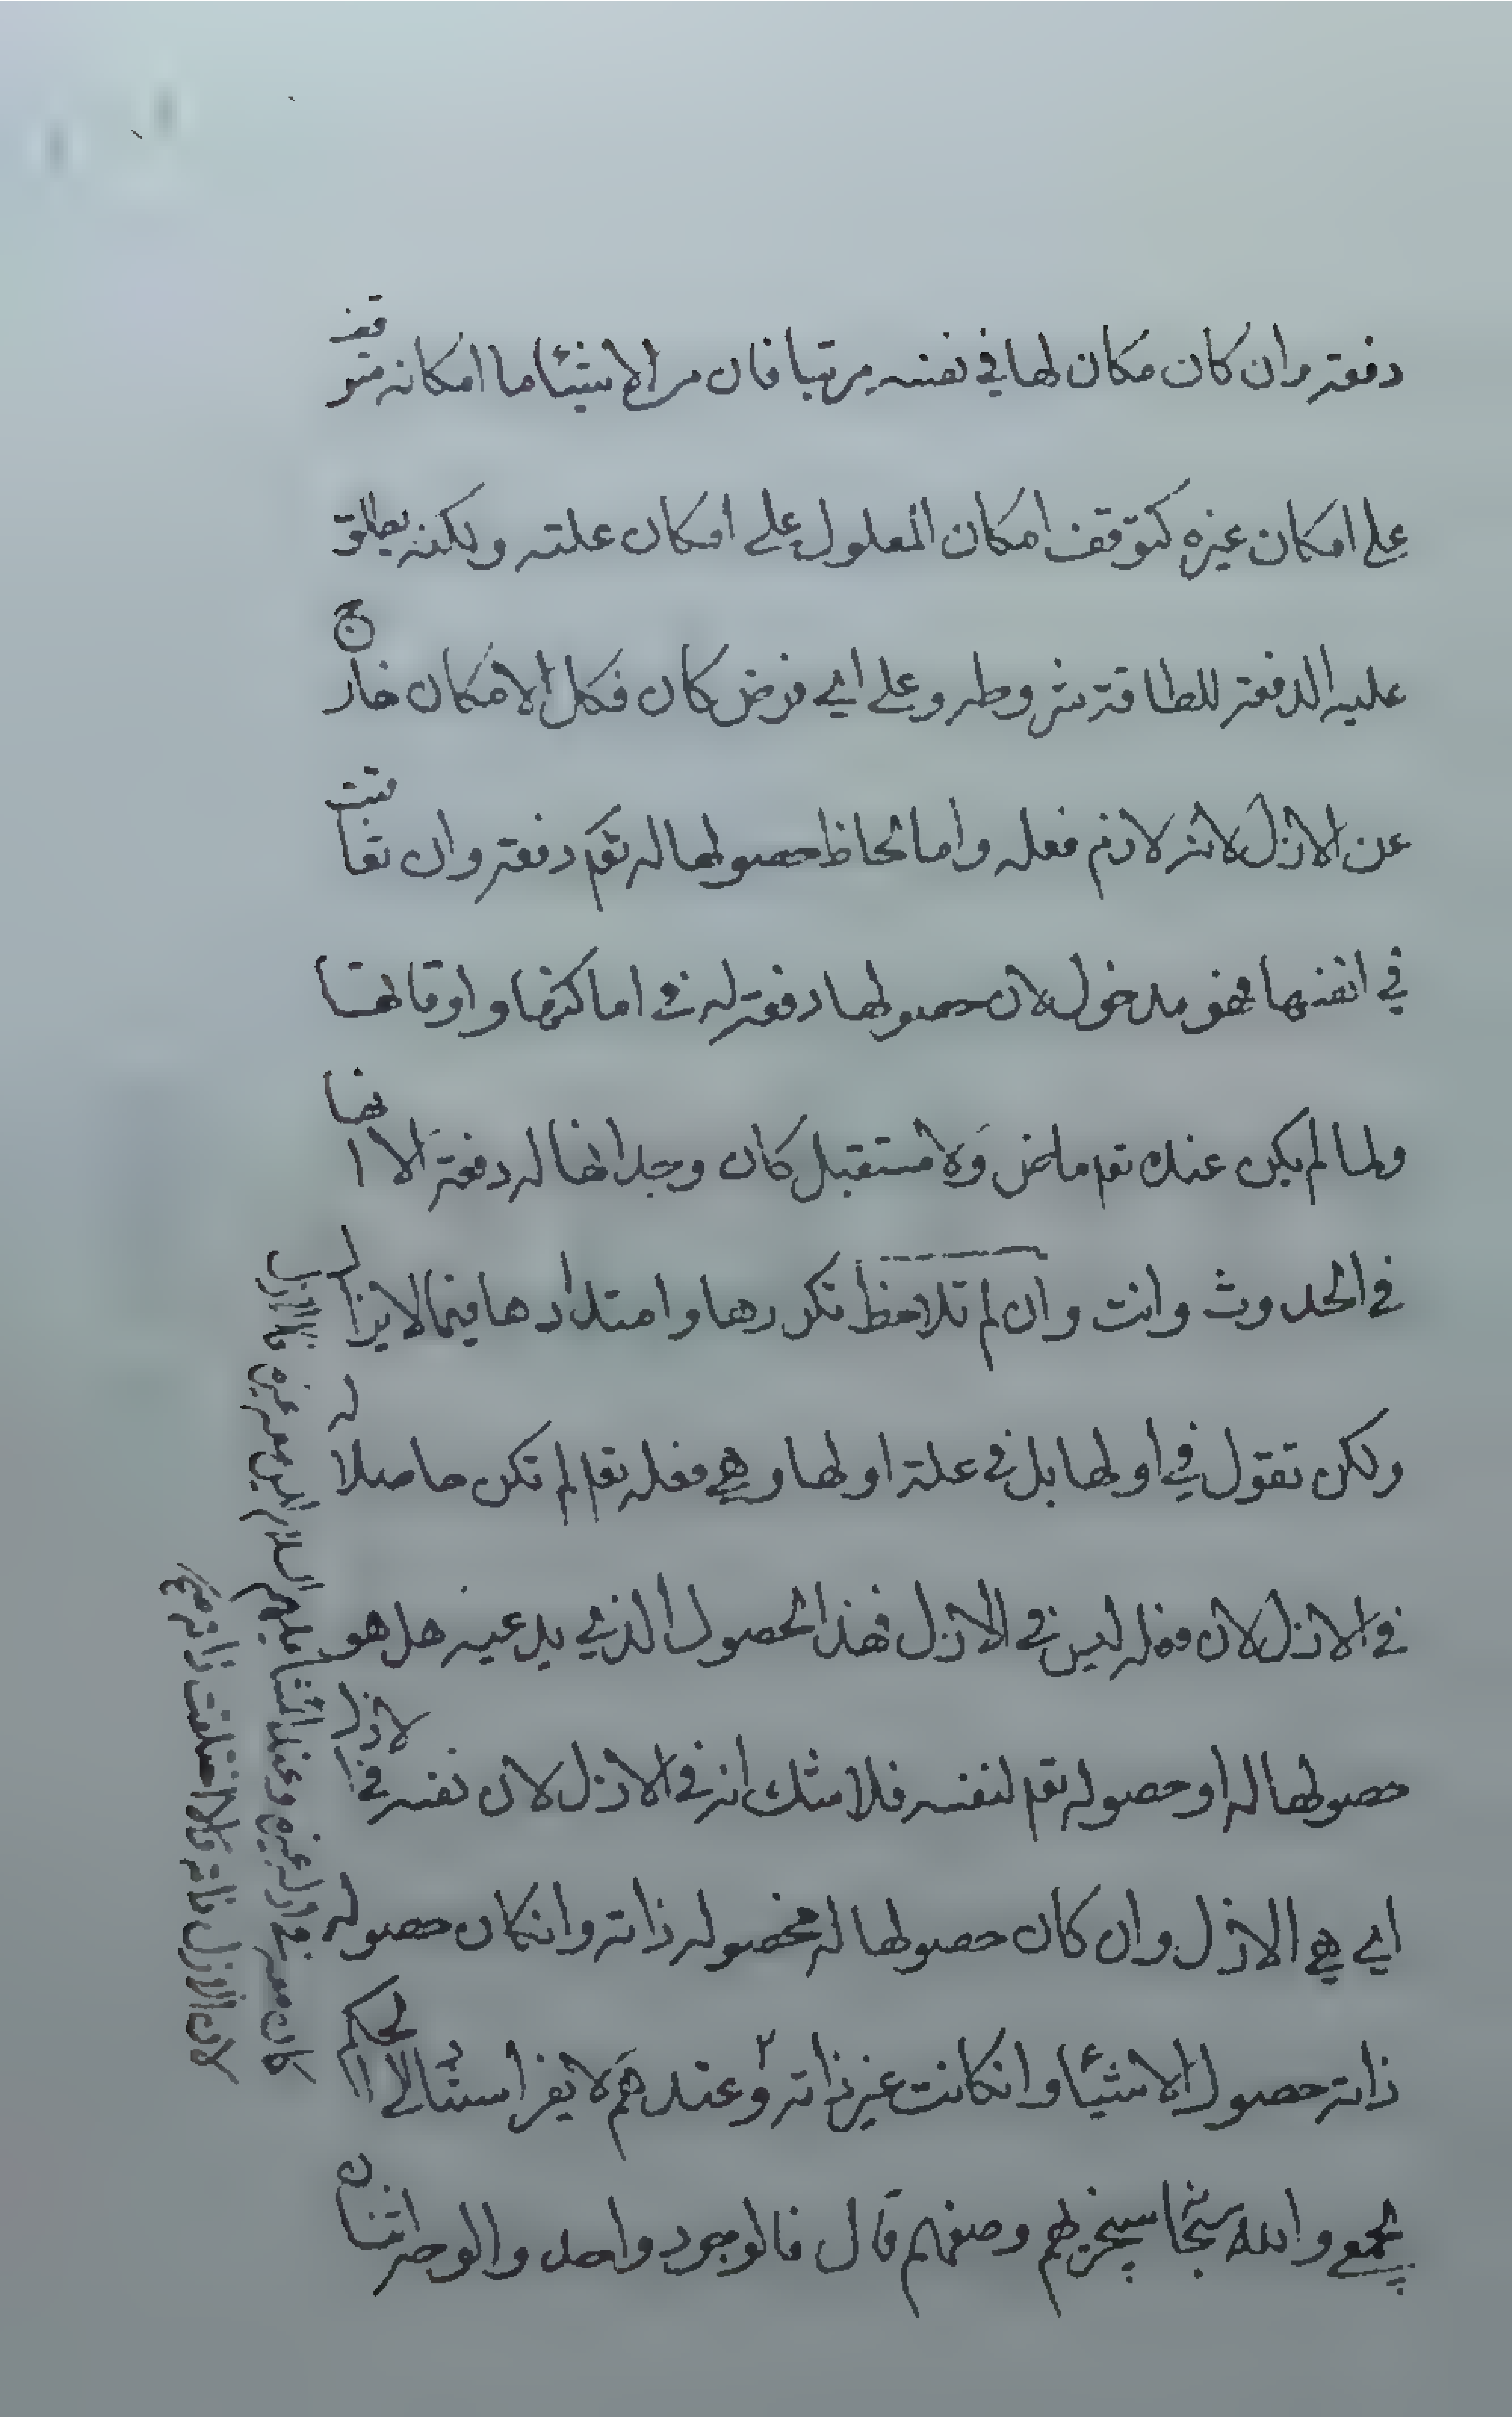 دفعة وان كان مكان لها في نفسه مرتبا فان من الاشيئا ما امكانه متوقف
على امكان غيره كتوقف امكان المعلول على امكان علته ولكنه يطلق
عليه الدفعة للطاقة شروطه وعلى اي فرض كان فكل الامكان خارج
عن الازل لانه لازم فعله واما لحاظ حصولها له تعم دفعة وان تعاقبت
في انفسها فهو مدخول لان حصولها دفعة له في اماكنها واوقاتها
ولما لم يكن عنده تعم ماض ولا مستقبل كان وجدانها له دفعة الا انها
في الحدوث وانت وان لم تلاحظ تكررها وامتدادها فيما لا يزال
ولكن تقول في اولها بل في علة اولها وهي فعله تعم لم تكن حاصلا له
في الازل لان فعله ليس في الازل فهذا الحصول الذي يدعيه هل هو
حصولها له او حصوله تعم لنفسه فلا شك انه في الازل لان نفسه في الازل
اي هي الازل وان كان حصولها له فحصوله ذاته وانكان حصوله
ذاته حصول الاشيئا وانكانت غير ذاته وعندهم لا يغر استثا الى الحكم
يجمع والله سبحانه سيجزيهم وصفهم قال فالوجود واحد والوجه اثنان
كان معه في الازل غيره وعند ائمتنا عليهم السلام ليس معه غيره في الازل
لان الازل ذاته فلا اختلفت ذاته مع